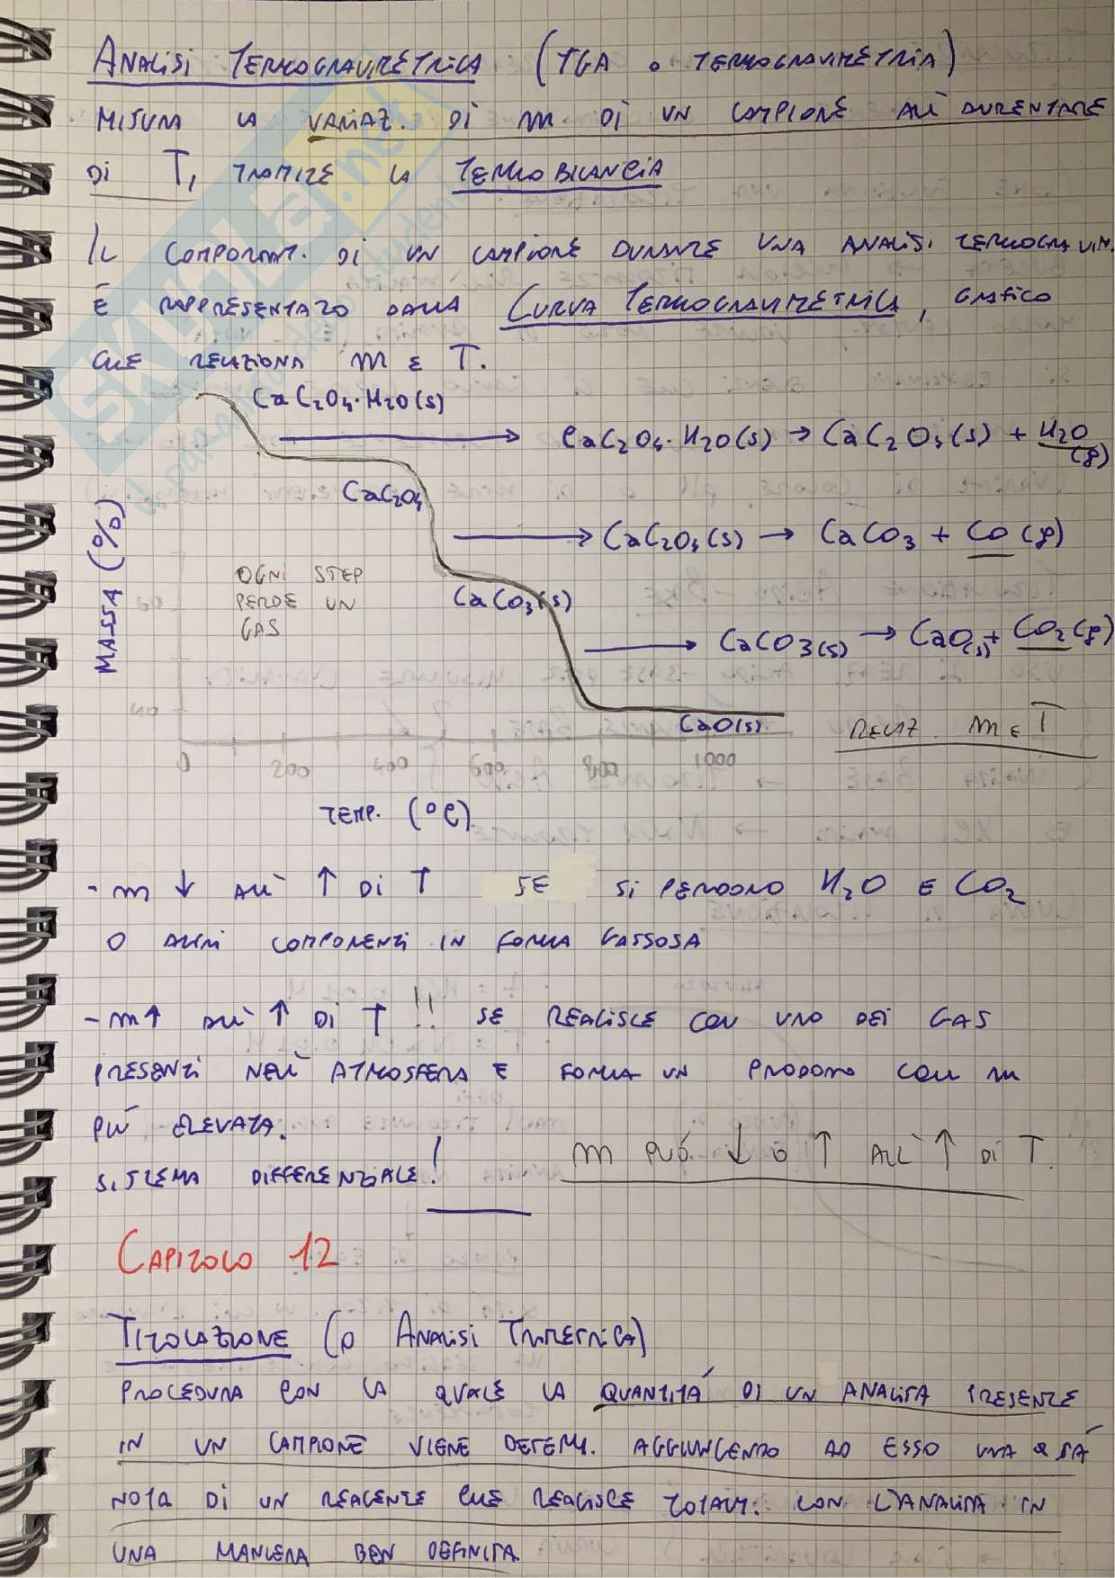 ANALISI TERMOGRAVIMETRICA (TGA O TERMOGRAVIMETRIA)
MISURA LA VARIAZ. DI m DI UN CAMPIONE ALL' AUMENTARE
DI T, TRAMITE LA TERMOBILANCIA
IL COMPORTAM. DI UN CAMPIONE DURANTE UNA ANALISI TERMOGRAVIM.
È RAPPRESENTATO DALLA CURVA TERMOGRAVIMETRICA, GRAFICO
CHE RELAZIONA m E T.
CaC2O4·H2O(s)
CaC2O4·H2O(s) → CaC2O4(s) + H2O(g)
CaC2O4
CaC2O4(s) → CaCO3 + CO(g)
MASSA (%)
OGNI STEP
PERDE UN
GAS
CaCO3(s)
CaCO3(s) → CaO(s) + CO2(g)
CaO(s)
RELAZ. m E T
0 200 400 600 800 1000
TEMP. (°C)
- m ↓ ALL' ↑ DI T SE SI PERDONO H2O E CO2
O ALTRI COMPONENTI IN FORMA GASSOSA
- m ↑ ALL' ↑ DI T !! SE REAGISCE CON UNO DEI GAS
PRESENTI NELL' ATMOSFERA E FORMA UN PRODOTTO CON m
PIÙ ELEVATA.
m PUÓ ↓ O ↑ ALL' ↑ DI T.
SISTEMA DIFFERENZIALE!
CAPITOLO 12
TITOLAZIONE (O ANALISI TITRIMETRICA)
PROCEDURA CON LA QUALE LA QUANTITÁ DI UN ANALITA PRESENTE
IN UN CAMPIONE VIENE DETERM. AGGIUNGENDO AD ESSO UNA QTÁ
NOTA DI UN REAGENTE CHE REAGISCE TOTALM. CON L'ANALITA IN
UNA MANIERA BEN DEFINITA.